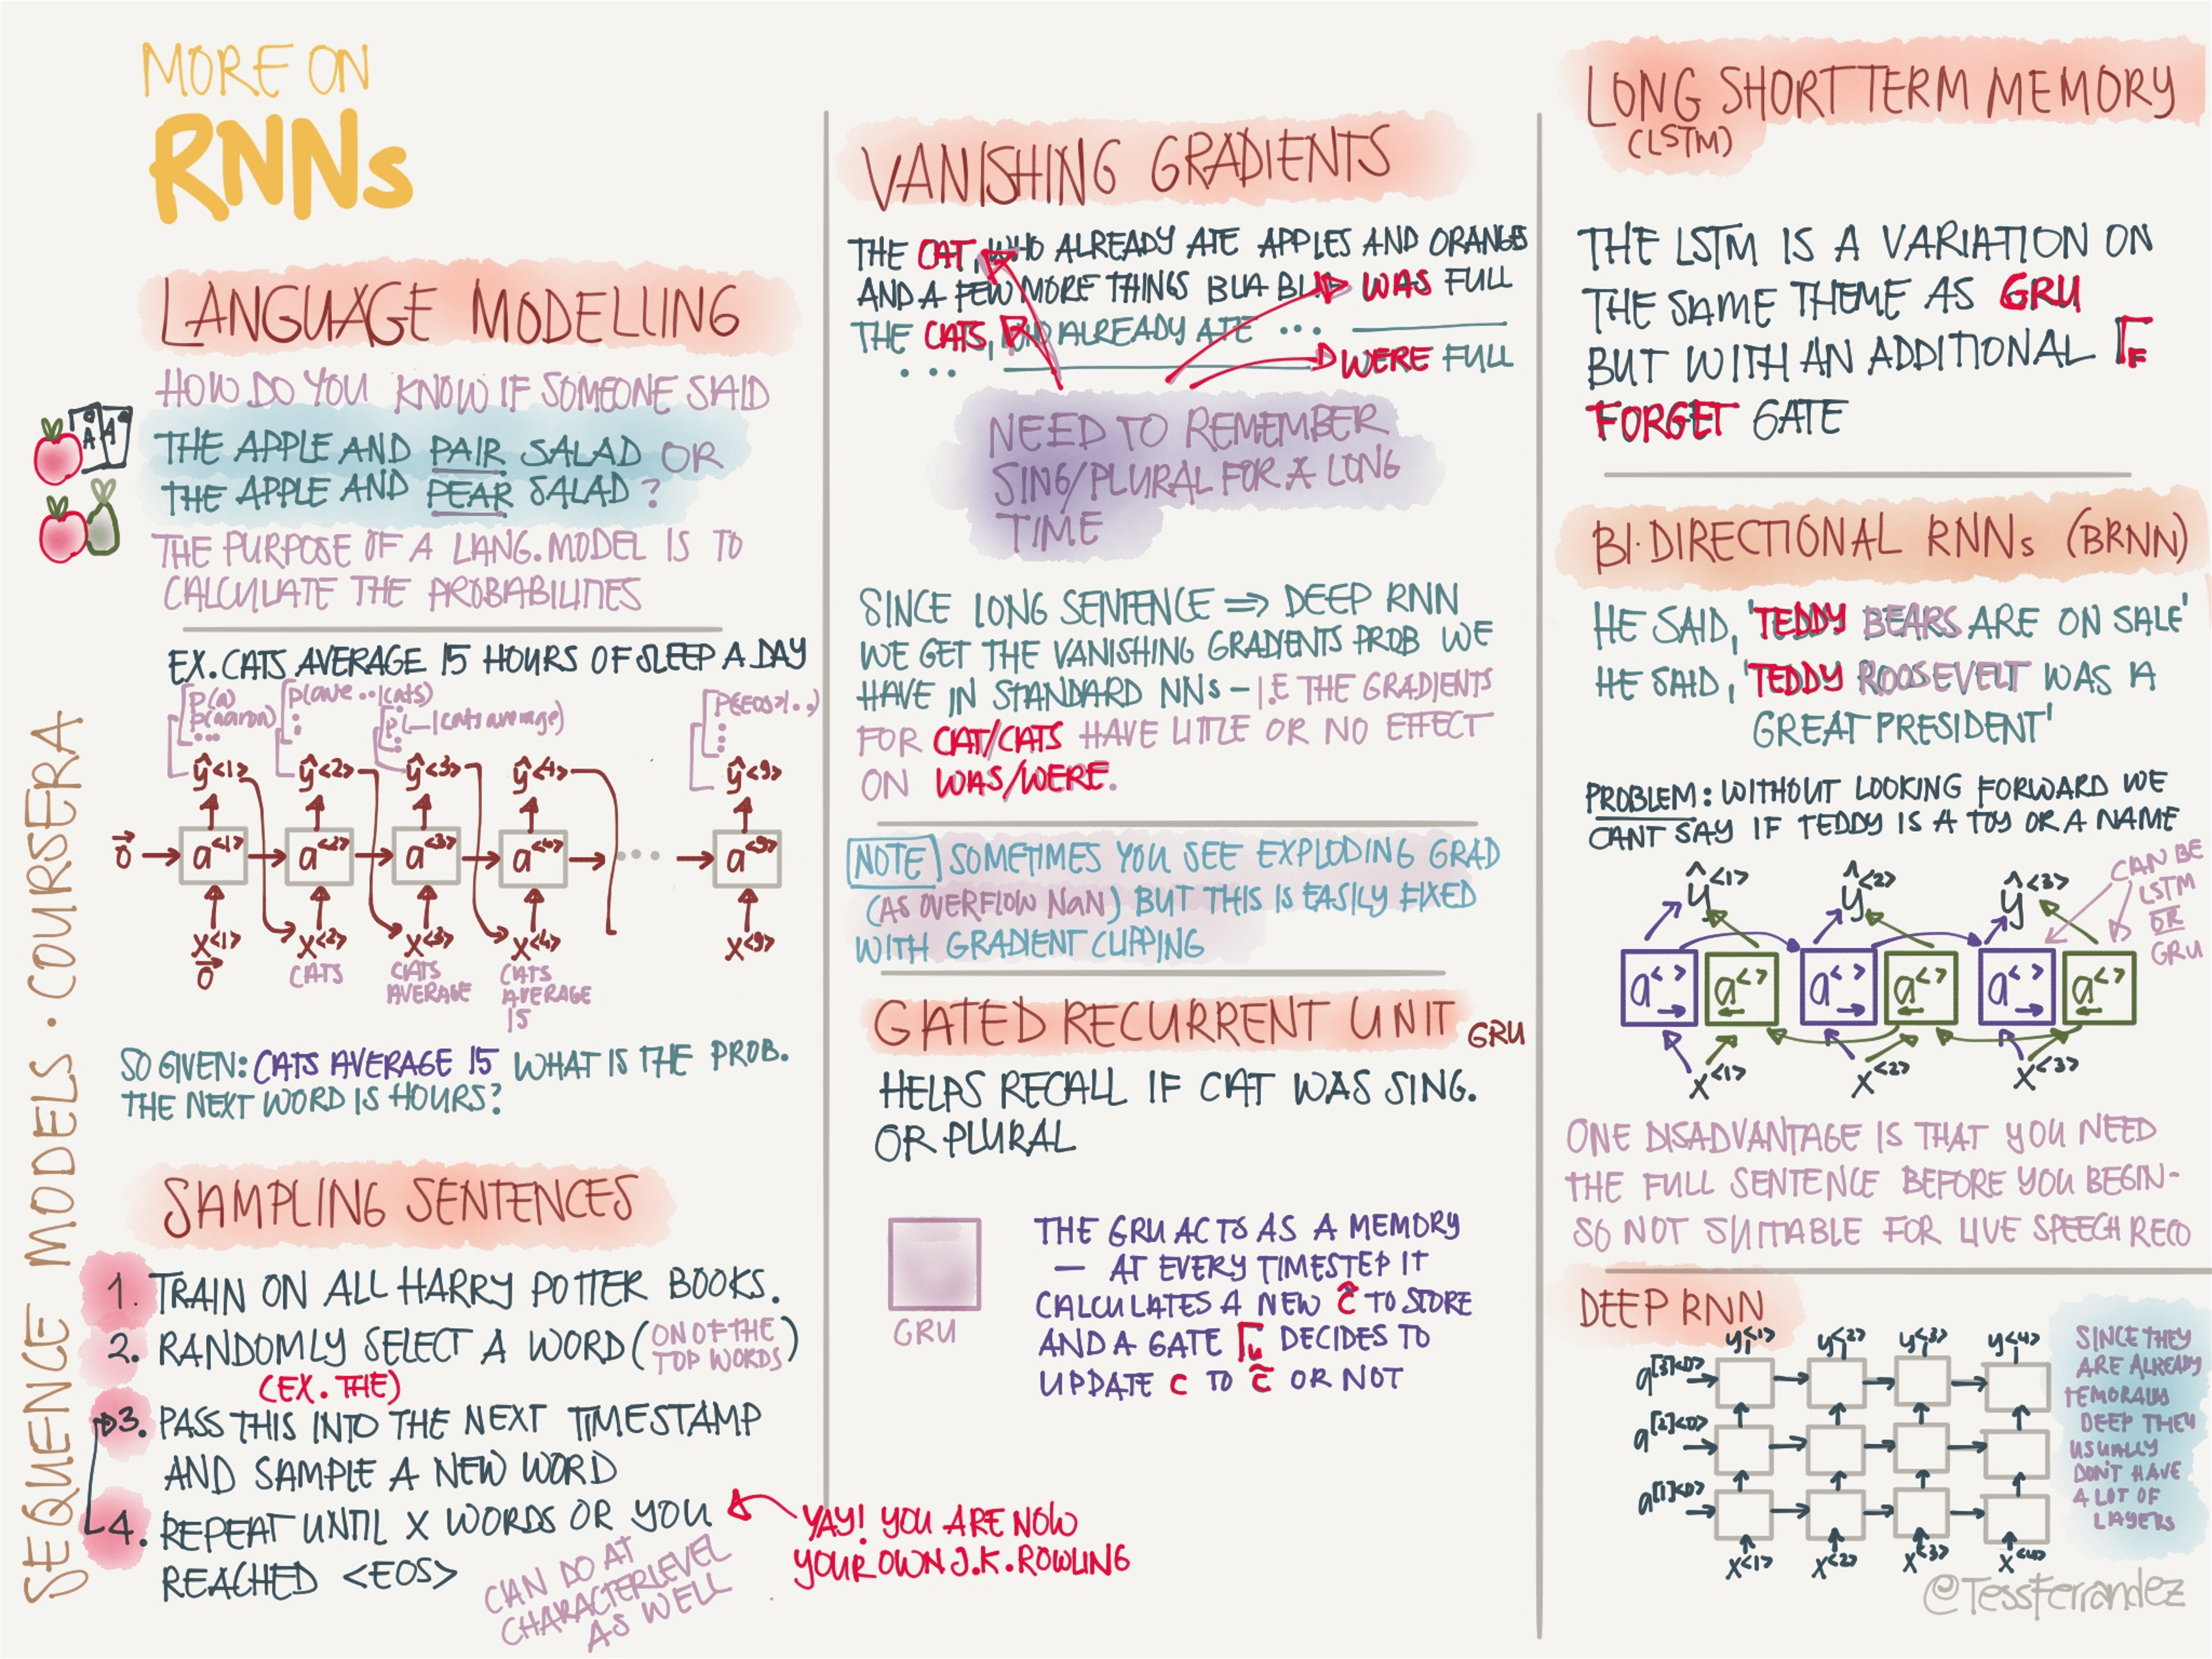 MORE ON
RNNs
SEQUENCE MODELS · COURSERA
LANGUAGE MODELLING
HOW DO YOU KNOW IF SOMEONE SAID
THE APPLE AND PAIR SALAD OR
THE APPLE AND PEAR SALAD?
THE PURPOSE OF A LANG. MODEL IS TO
CALCULATE THE PROBABILITIES
EX. CATS AVERAGE 15 HOURS OF SLEEP A DAY
P(a)
P(aaron)
...
P(ave..|cats)
P(_|cats average)
P(EOS|..)
ŷ<1> ŷ<2> ŷ<3> ŷ<4> ŷ<9>
0⃗ a<1> a<2> a<3> a<4> ... a<9>
x<1> x<2> x<3> x<4> x<9>
0⃗
CATS
CATS
AVERAGE
CATS
AVERAGE
15
SO GIVEN: CATS AVERAGE 15 WHAT IS THE PROB.
THE NEXT WORD IS HOURS?
SAMPLING SENTENCES
1. TRAIN ON ALL HARRY POTTER BOOKS.
2. RANDOMLY SELECT A WORD (ON OF THE TOP WORDS)
(EX. THE)
3. PASS THIS INTO THE NEXT TIMESTAMP
AND SAMPLE A NEW WORD
4. REPEAT UNTIL X WORDS OR YOU
REACHED <EOS>
CAN DO AT
CHARACTERLEVEL
AS WELL
YAY! YOU ARE NOW
YOUR OWN J.K. ROWLING
VANISHING GRADIENTS
THE CAT, WHO ALREADY ATE APPLES AND ORANGES
AND A FEW MORE THINGS BLA BLA WAS FULL
THE CATS, WHO ALREADY ATE ...
... WERE FULL
NEED TO REMEMBER
SING/PLURAL FOR A LONG
TIME
SINCE LONG SENTENCE ⇒ DEEP RNN
WE GET THE VANISHING GRADIENTS PROB WE
HAVE IN STANDARD NNs – I.E THE GRADIENTS
FOR CAT/CATS HAVE LITTLE OR NO EFFECT
ON WAS/WERE.
NOTE SOMETIMES YOU SEE EXPLODING GRAD
(AS OVERFLOW NaN) BUT THIS IS EASILY FIXED
WITH GRADIENT CLIPPING
GATED RECURRENT UNIT GRU
HELPS RECALL IF CAT WAS SING.
OR PLURAL
GRU
THE GRU ACTS AS A MEMORY
— AT EVERY TIMESTEP IT
CALCULATES A NEW c̃ TO STORE
AND A GATE Γu DECIDES TO
UPDATE c TO c̃ OR NOT
LONG SHORT TERM MEMORY
(LSTM)
THE LSTM IS A VARIATION ON
THE SAME THEME AS GRU
BUT WITH AN ADDITIONAL ΓF
FORGET GATE
BI·DIRECTIONAL RNNs (BRNN)
HE SAID, 'TEDDY BEARS ARE ON SALE'
HE SAID, 'TEDDY ROOSEVELT WAS A
GREAT PRESIDENT'
PROBLEM: WITHOUT LOOKING FORWARD WE
CANT SAY IF TEDDY IS A TOY OR A NAME
ŷ<1> ŷ<2> ŷ<3>
CAN BE
LSTM
OR
GRU
a< > a< > a< > a< > a< > a< >
x<1> x<2> x<3>
ONE DISADVANTAGE IS THAT YOU NEED
THE FULL SENTENCE BEFORE YOU BEGIN-
SO NOT SUITABLE FOR LIVE SPEECH RECO
DEEP RNN
y<1> y<2> y<3> y<4>
a[3]<0>
a[2]<0>
a[1]<0>
x<1> x<2> x<3> x<4>
SINCE THEY
ARE ALREADY
TEMORALLY
DEEP THEY
USUALLY
DON'T HAVE
A LOT OF
LAYERS
@TessFerrandez